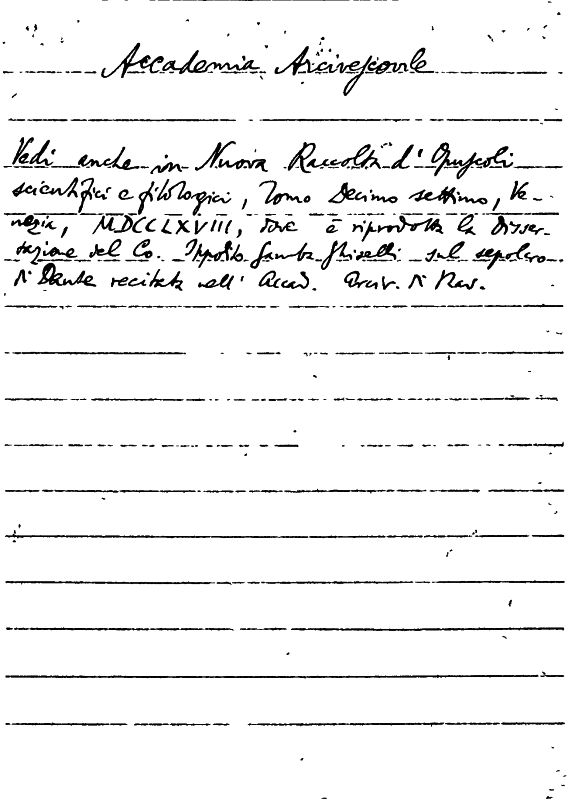 Accademia Arcivescovile
Vedi anche in Nuova Raccolta d'Opuscoli
scientifici e filologici, Tomo Decimo settimo, Ve-
nezia, MDCCLXVIII, dove è riprodotta la Disser-
tazione del Co. Ippolito Gamba Ghiselli sul sepolcro
di Dante recitata nell' Accad. Arciv. di Rav.